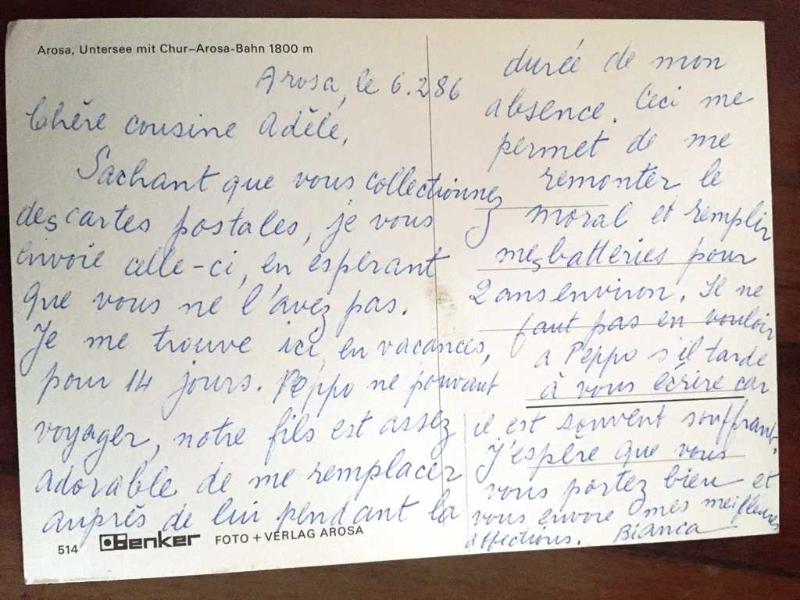 Arosa, Untersee mit Chur–Arosa-Bahn 1800 m
Arosa, le 6.2.86
Chère cousine Adèle,
Sachant que vous collectionnez
des cartes postales, je vous
envoie celle-ci, en espérant
que vous ne l'avez pas.
Je me trouve ici, en vacances,
pour 14 jours. Peppo ne pouvant
voyager, notre fils est assez
adorable de me remplacer
auprès de lui pendant la
durée de mon
absence. Ceci me
permet de me
remonter le
moral et remplir
mes batteries pour
2 ans environ. Il ne
faut pas en vouloir
a Peppo s'il tarde
à vous écrire car
il est souvent souffrant.
J'espère que vous
vous portez bien et
vous envoie mes meilleures
affections. Bianca
514 Benker FOTO + VERLAG AROSA